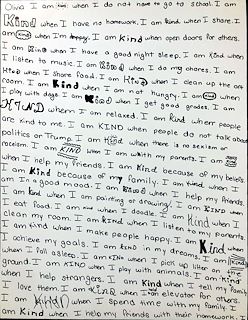 Olivia I am kind when I do not have to go to school. I am
Kind when I have no homework. I am kind when I share. I
am kind when I'm happy. I am kind when open doors for others.
I am Kind when I have a good night sleep. I am kind when I
listen to music. I am Kind when I do my chores. I am
Kind when I share food. I am Kind when I clean up the art
room. I am Kind when I am not hungry. I am kind when
I play with dogs. I am Kind when I get good grades. I am
KIND when I am relaxed. I am kind when people
are kind to me. I am KIND when people do not talk about
politics or Trump. I am kind when there is no sexism or
racism. I am KIND when I am with my parents. I am kind
when I help my friends. I am Kind because of my friends.
I am Kind because of my family. I am kind when I
am in a good mood. I am Kind when I help my friends.
I am kind when I am painting or drawing. I am KIND when
I eat food. I am kind when I doodle. I am Kind when I
clean my room. I am kind when I listen to my parents.
I am kind when I make people happy. I am Kind when
I achieve my goals. I am kind in my dreams. I am kind
when I fall asleep. I am kind when I pick up litter on the
ground. I am kind when I play with animals. I am kind
when I help strangers. I am Kind when I tell my family
I love them. I am kind when I elevator for others.
I am Kind when I spend time with my family. I
am Kind when I help my friends with their homework.